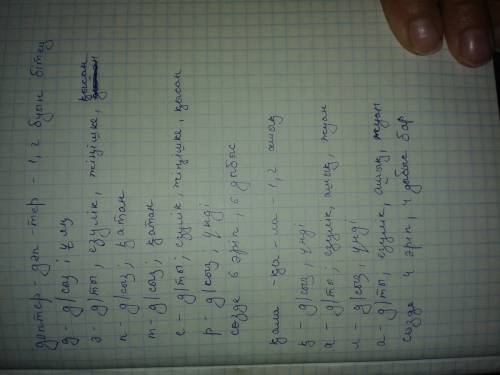 дәптер - дәп - тер - 1, 2 буын бітеу
д - д/сыз ; ұяң
ә - д/ты ; езулік, жіңішке, қысаң
п - д/сыз ; қатаң
т - д/сыз ; қатаң
е - д/ты ; езулік, жіңішке, қысаң
р - д/сыз ; үнді
сөзде 6 әріп, 6 дыбыс
қала - қа - ла - 1, 2 ашық
қ - д/сыз ; үнді
а - д/ты ; езулік, ашық, жуан
л - д/сыз ; үнді
а - д/ты, езулік, ашық, жуан
сөзде 4 әріп, 4 дыбыс бар